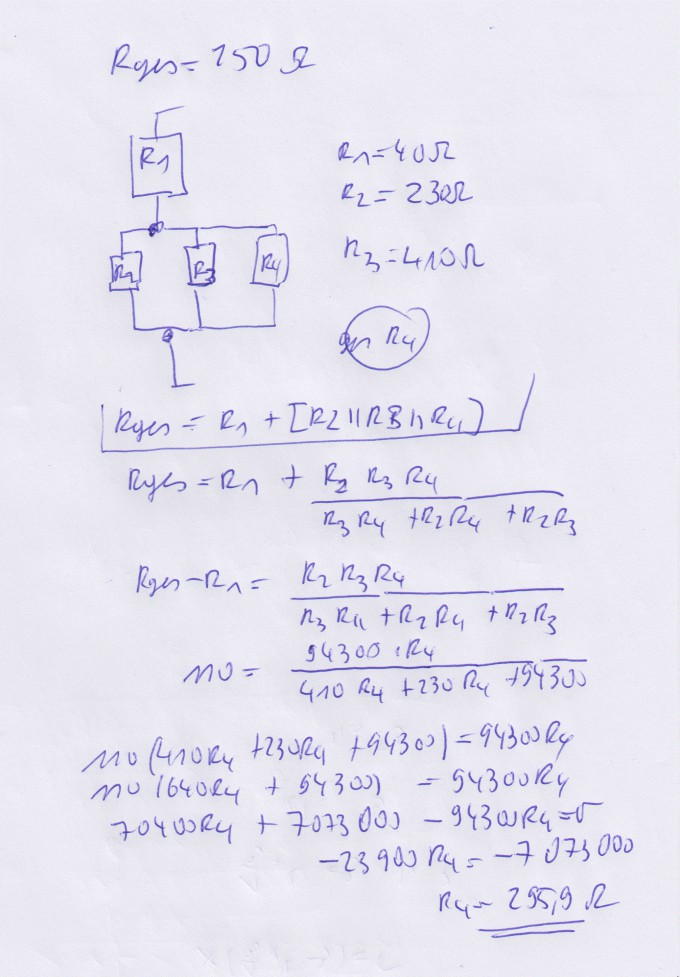 Rges = 150 Ω
R1
R1 = 40Ω
R2 = 230Ω
R3 = 410Ω
R2 R3 R4
ges R4
Rges = R1 + [R2 || R3 || R4]
Rges = R1 + R2 R3 R4
R3 R4 + R2 R4 + R2 R3
Rges - R1 = R2 R3 R4
R3 R4 + R2 R4 + R2 R3
94300 · R4
110 =
410 R4 + 230 R4 + 94300
110 (410R4 + 230R4 + 94300) = 94300R4
110 (640R4 + 94300) = 94300R4
70400R4 + 7073000 - 94300R4 = 0
-23900 R4 = -7073000
R4 = 295,9 Ω